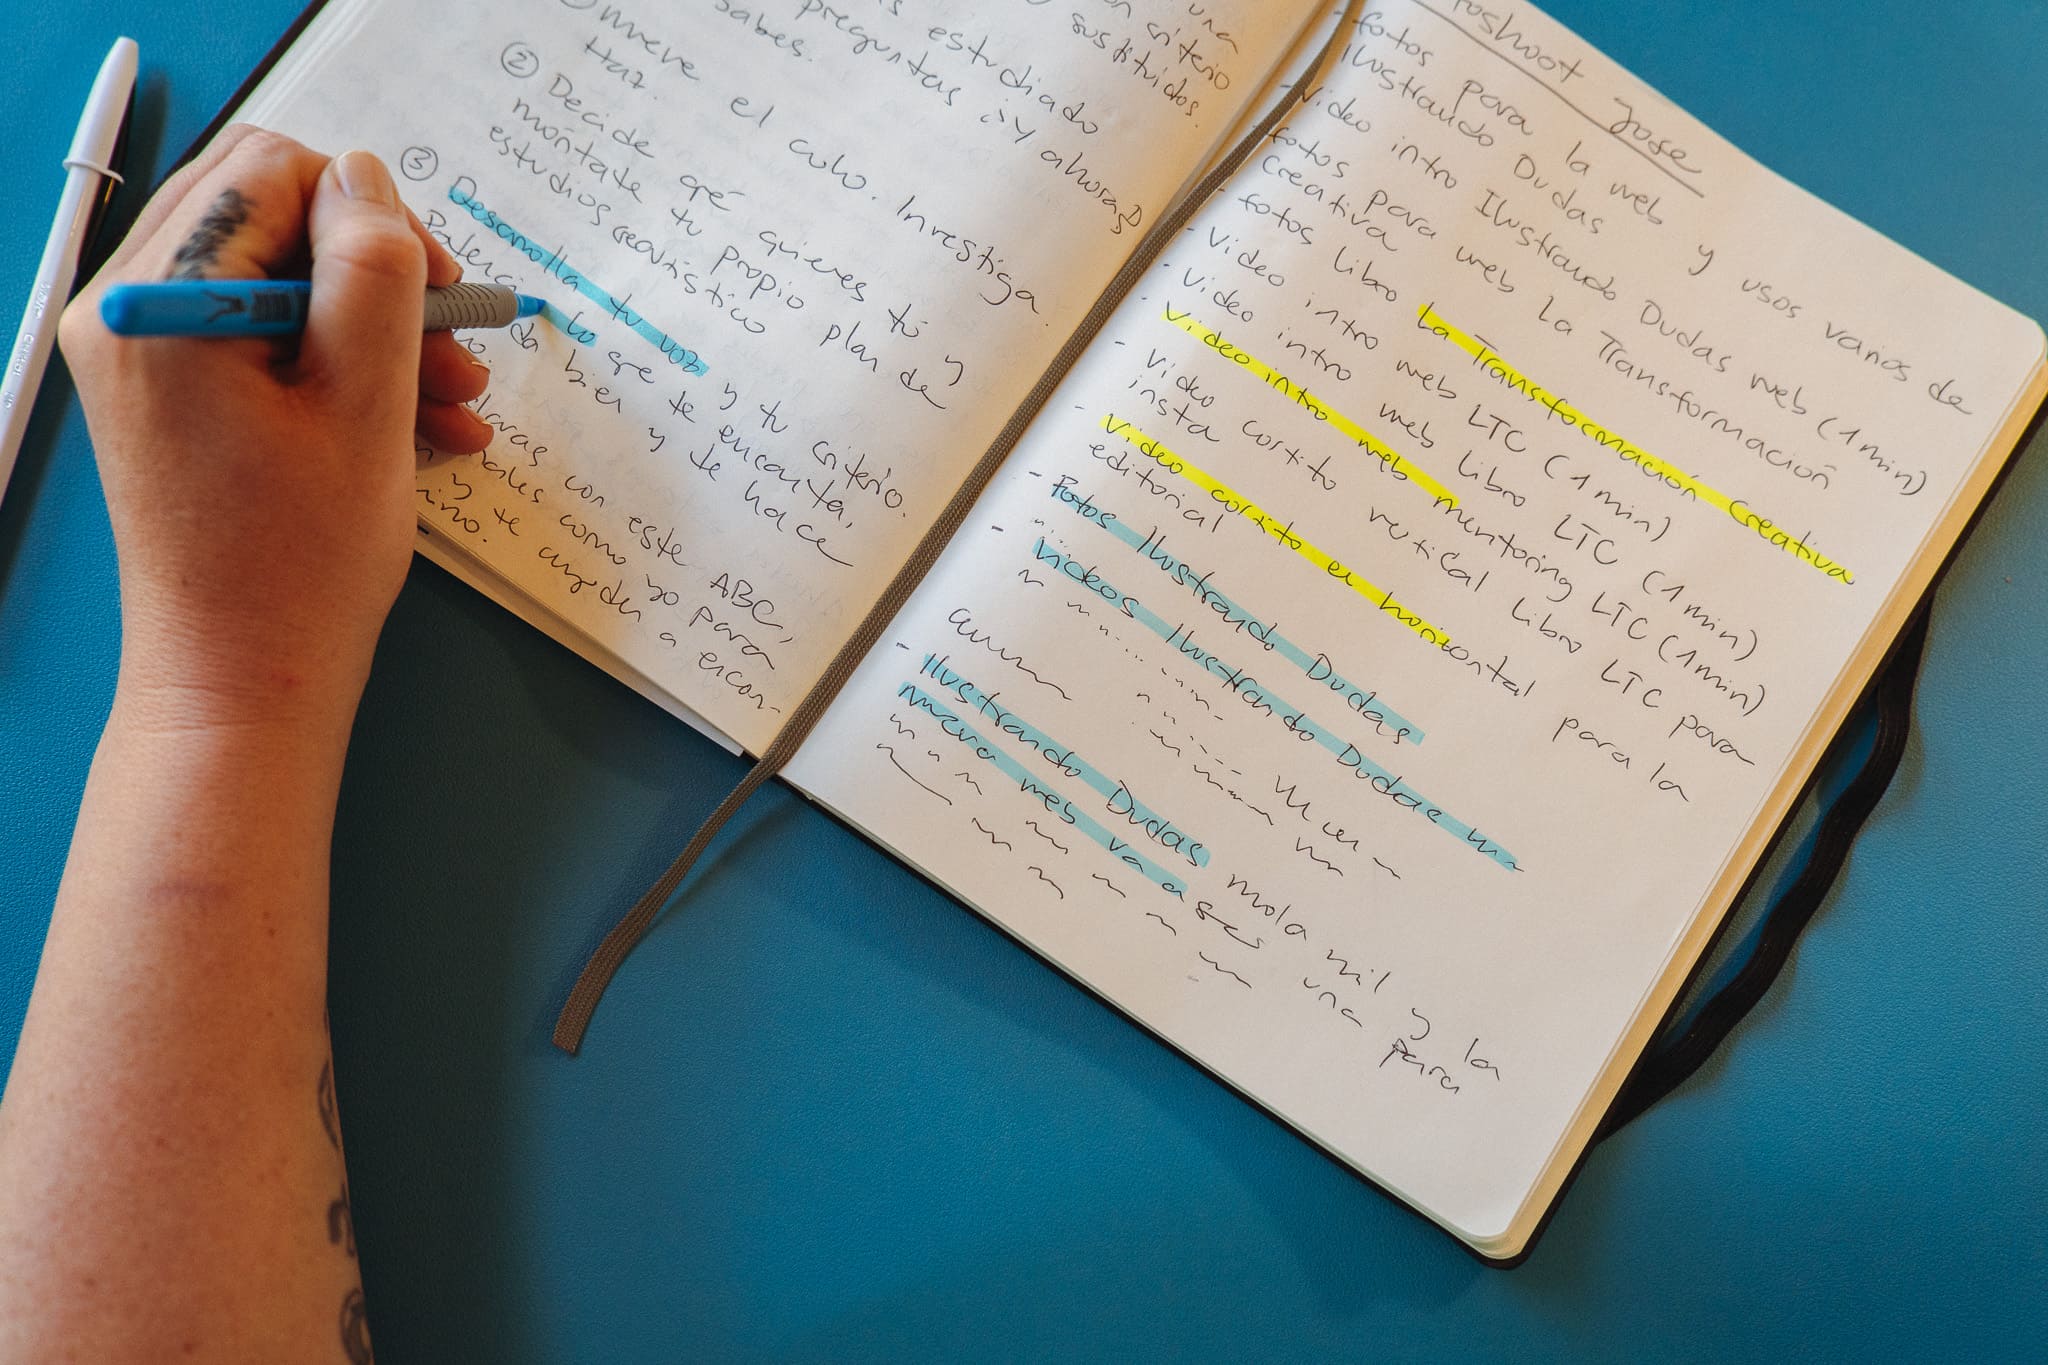 una
criterio
sustituidos.
estudiado
preguntas ¿y ahora?
sabes.
① mueve el culo. Investiga.
Haz.
② Decide qué quieres tú y
móntate tu propio plan de
estudios creartístico
③ Desarrolla tu voz y tu criterio.
Potencia lo que te encanta,
da bien y te hace
con este ABC,
como yo para
y te ayuden a encon-
Photoshoot Jose
- fotos para la web y usos varios de
Ilustrando Dudas
- video intro Ilustrando Dudas web (1 min)
- fotos para web La Transformación
Creativa
- fotos libro La Transformación Creativa
- Video intro web LTC (1 min)
- Video intro web libro LTC (1 min)
- Video intro web mentoring LTC (1 min)
- Video cortito vertical libro LTC para
insta
- Video cortito en horizontal para la
editorial
- Fotos Ilustrando Dudas
- Videos Ilustrando Dudas
- Ilustrando Dudas mola mil y la
nueva web va a ser una
para